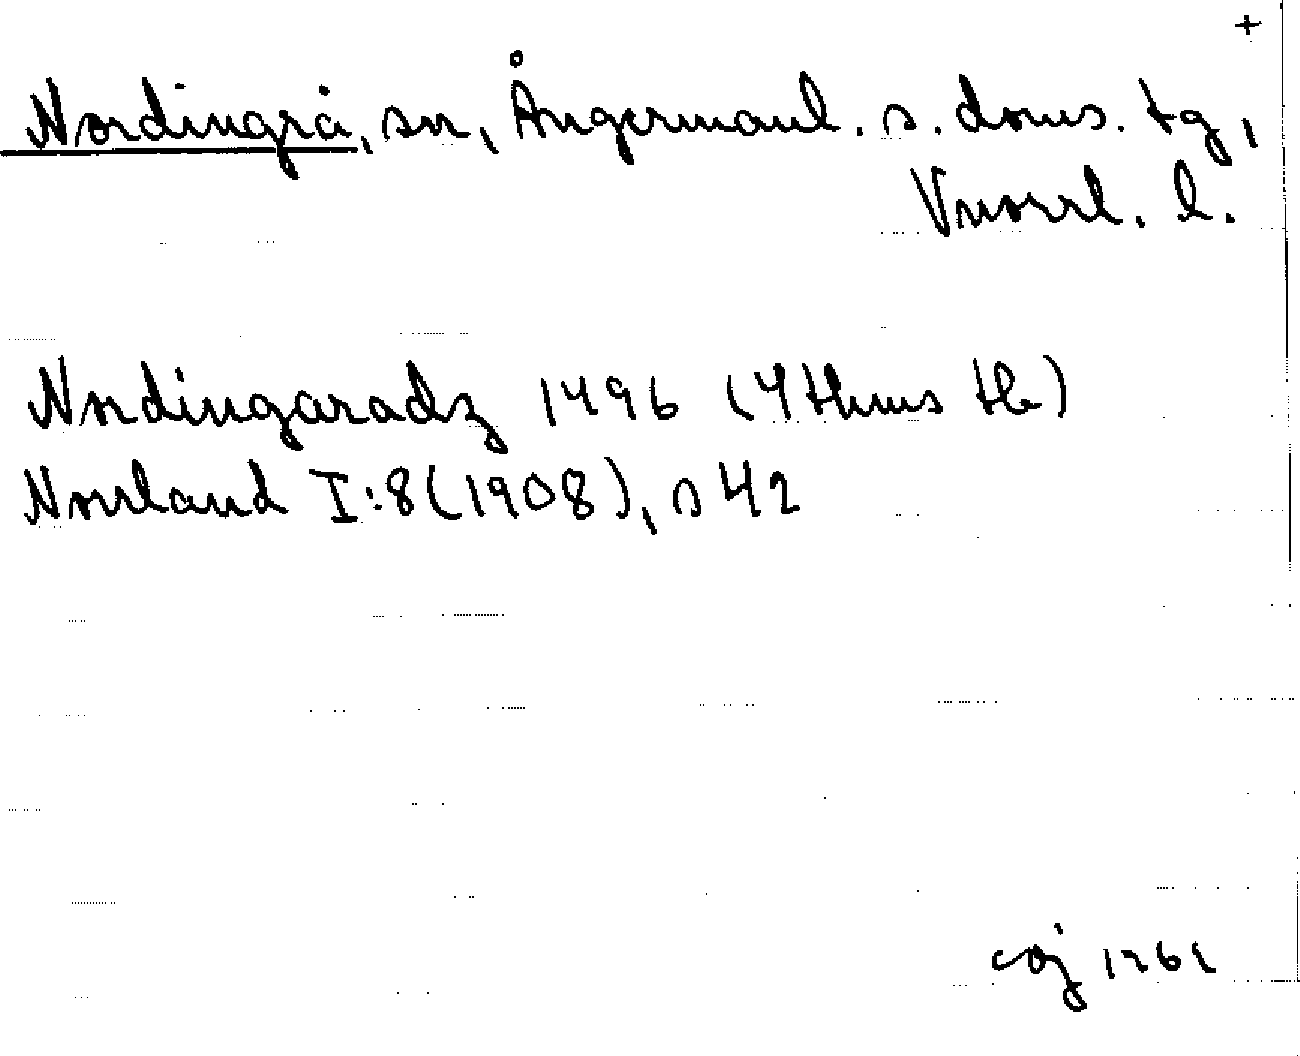 +
Nordingrå, sn, Ångermanl. s. doms. tg,
Vnorrl. l.
Nordingaradz 1496 (Ythms tb)
Norrland I:8 (1908), s 42
coj 1261